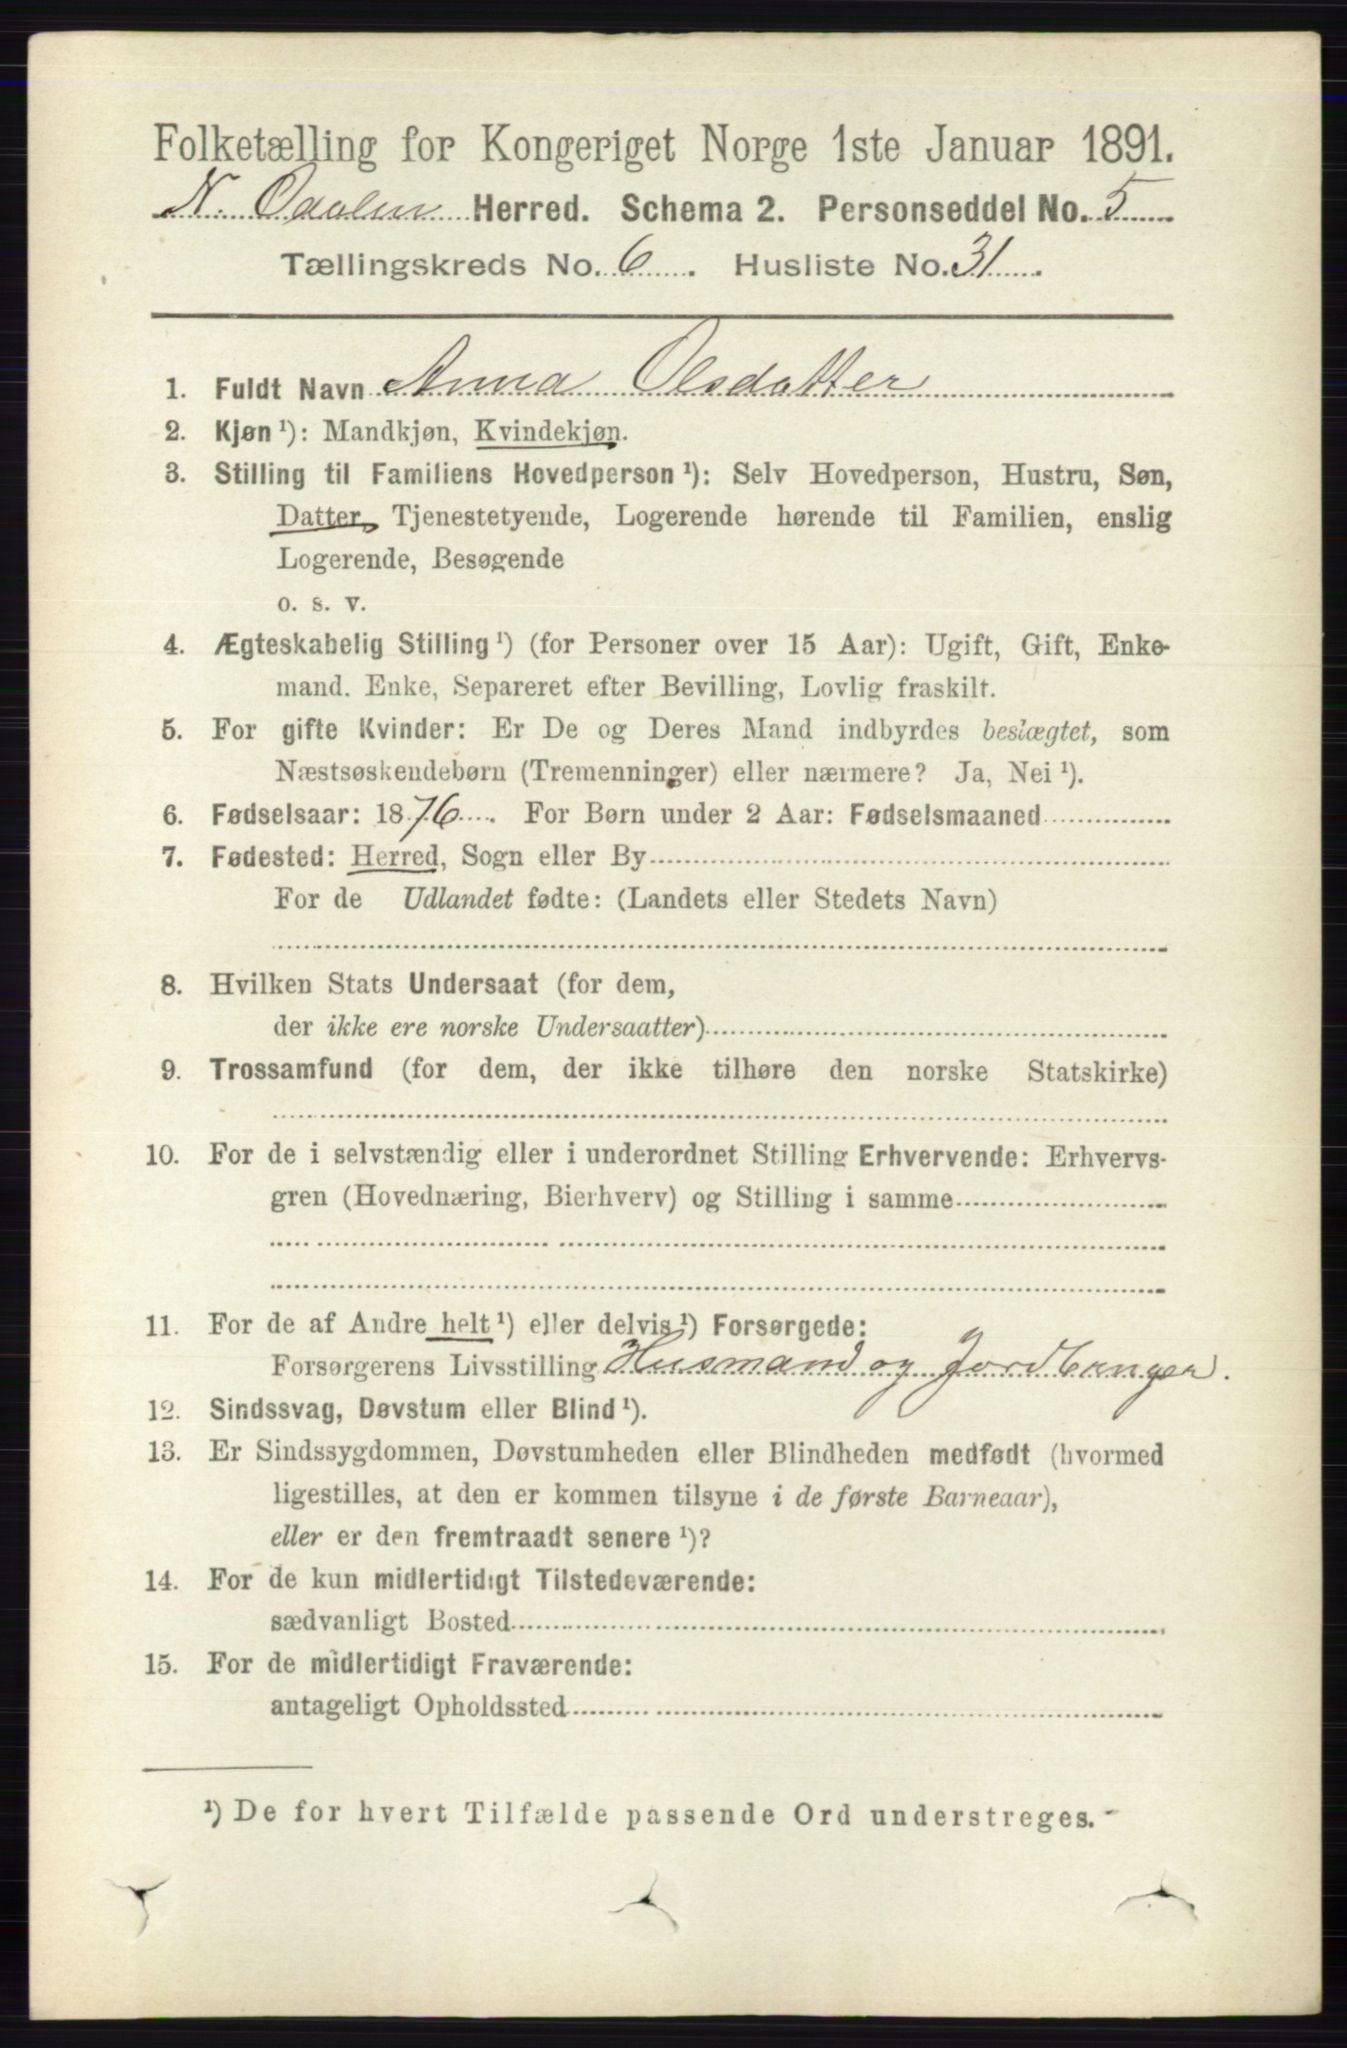 Folketælling for Kongeriget Norge 1ste Januar 1891.
N. Odalen Herred. Schema 2. Personseddel No. 5
Tællingskreds No. 6. Husliste No. 31.
1. Fuldt Navn Anna Olsdatter
2. Kjøn ¹): Mandkjøn, Kvindekjøn.
3. Stilling til Familiens Hovedperson ¹): Selv Hovedperson, Hustru, Søn,
Datter, Tjenestetyende, Logerende hørende til Familien, enslig
Logerende, Besøgende
o. s. v.
4. Ægteskabelig Stilling ¹) (for Personer over 15 Aar): Ugift, Gift, Enke-
mand. Enke, Separeret efter Bevilling, Lovlig fraskilt.
5. For gifte Kvinder: Er De og Deres Mand indbyrdes beslægtet, som
Næstsøskendebørn (Tremenninger) eller nærmere? Ja, Nei ¹).
6. Fødselsaar: 1876. For Børn under 2 Aar: Fødselsmaaned
7. Fødested: Herred, Sogn eller By
For de Udlandet fødte: (Landets eller Stedets Navn)
8. Hvilken Stats Undersaat (for dem,
der ikke ere norske Undersaatter)
9. Trossamfund (for dem, der ikke tilhøre den norske Statskirke)
10. For de i selvstændig eller i underordnet Stilling Erhvervende: Erhvervs-
gren (Hovednæring, Bierhverv) og Stilling i samme
11. For de af Andre helt ¹) eller delvis ¹) Forsørgede:
Forsørgerens Livsstilling Husmand og Jordbruger.
12. Sindssvag, Døvstum eller Blind ¹).
13. Er Sindssygdommen, Døvstumheden eller Blindheden medfødt (hvormed
ligestilles, at den er kommen tilsyne i de første Barneaar),
eller er den fremtraadt senere ¹)?
14. For de kun midlertidigt Tilstedeværende:
sædvanligt Bosted
15. For de midlertidigt Fraværende:
antageligt Opholdssted
¹) De for hvert Tilfælde passende Ord understreges.